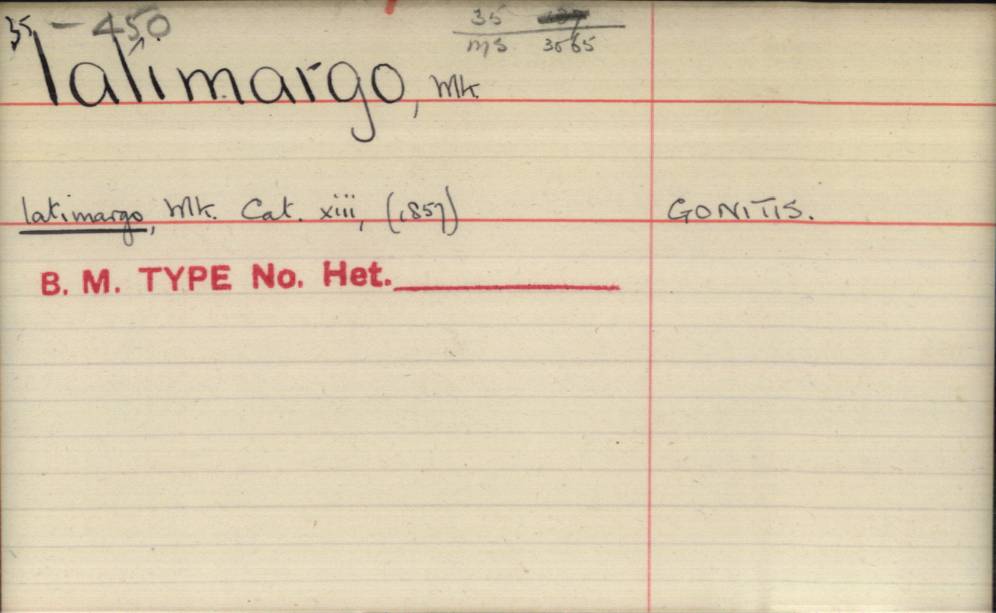 35 - 450
35
ms 3065
latimargo, Wlk.
latimargo, Wlk. Cat. xiii, (1857)
GONITIS.
B. M. TYPE No. Het.